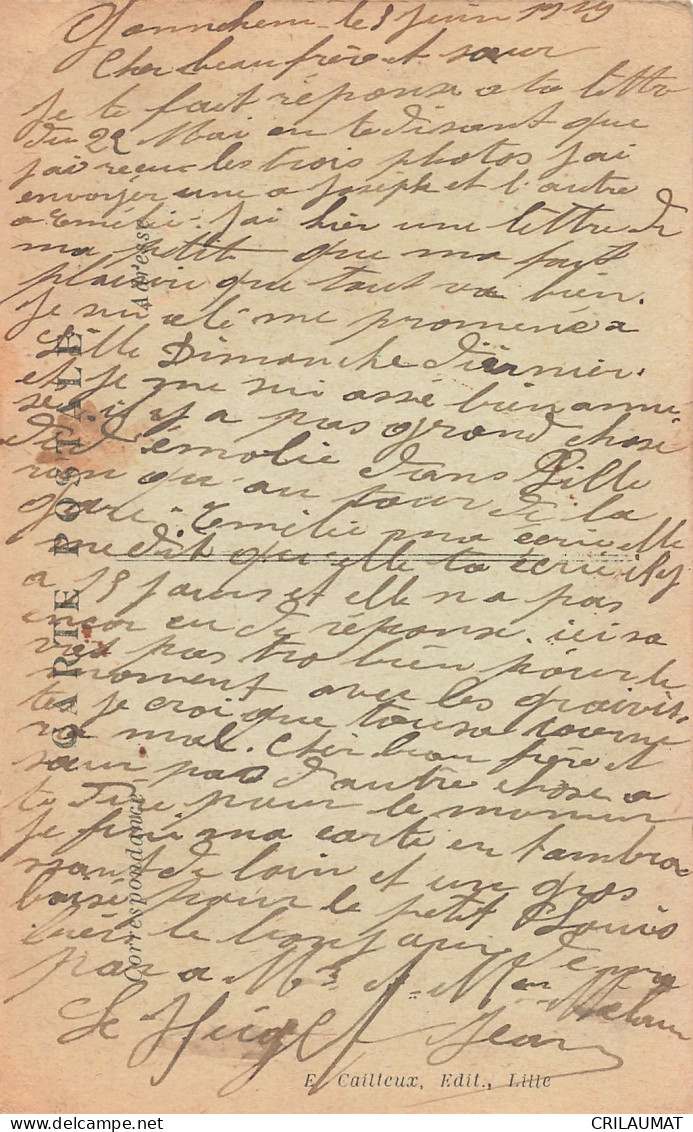 le 8 Juin 1919
Cher beau frère et sœur
Je te fait réponse a ta lettre
du 22 Mai en te disant que
j'ai reçue les trois photos j'ai
envoyér une a Joseph et l'autre
a Emélie. J'ai hier une lettre de
ma petit que ma fait
plaisire que tout va bien.
Je sui alé me promené a
Lille Dimanche dièrnier.
et je me sui assé bien annu
sé, il y a pas grand chose
de démolie dans Lille
rien qu'au tour de la
gare. Emélie ma écrie elle
me dit qu'elle ta écrie il y
a 15 jours et elle n a pas
encor eu de réponse. ici sa
vas pas tro bien pour le
moment avec les graivis
tes je croi que tousa tourne
ra mal. Cher beau frère et
sœur pas d'autre chose a
te dire pour le momen
Je fini ma carte en tambra
sant de loin et un gros
baisé pour le petit Louis
bien le bonjour de ma
par a Mr et Mme
Le Jean
CARTE POSTALE
Correspondance
Adresse
E. Cailteux, Edit., Lille
CRILAUMAT